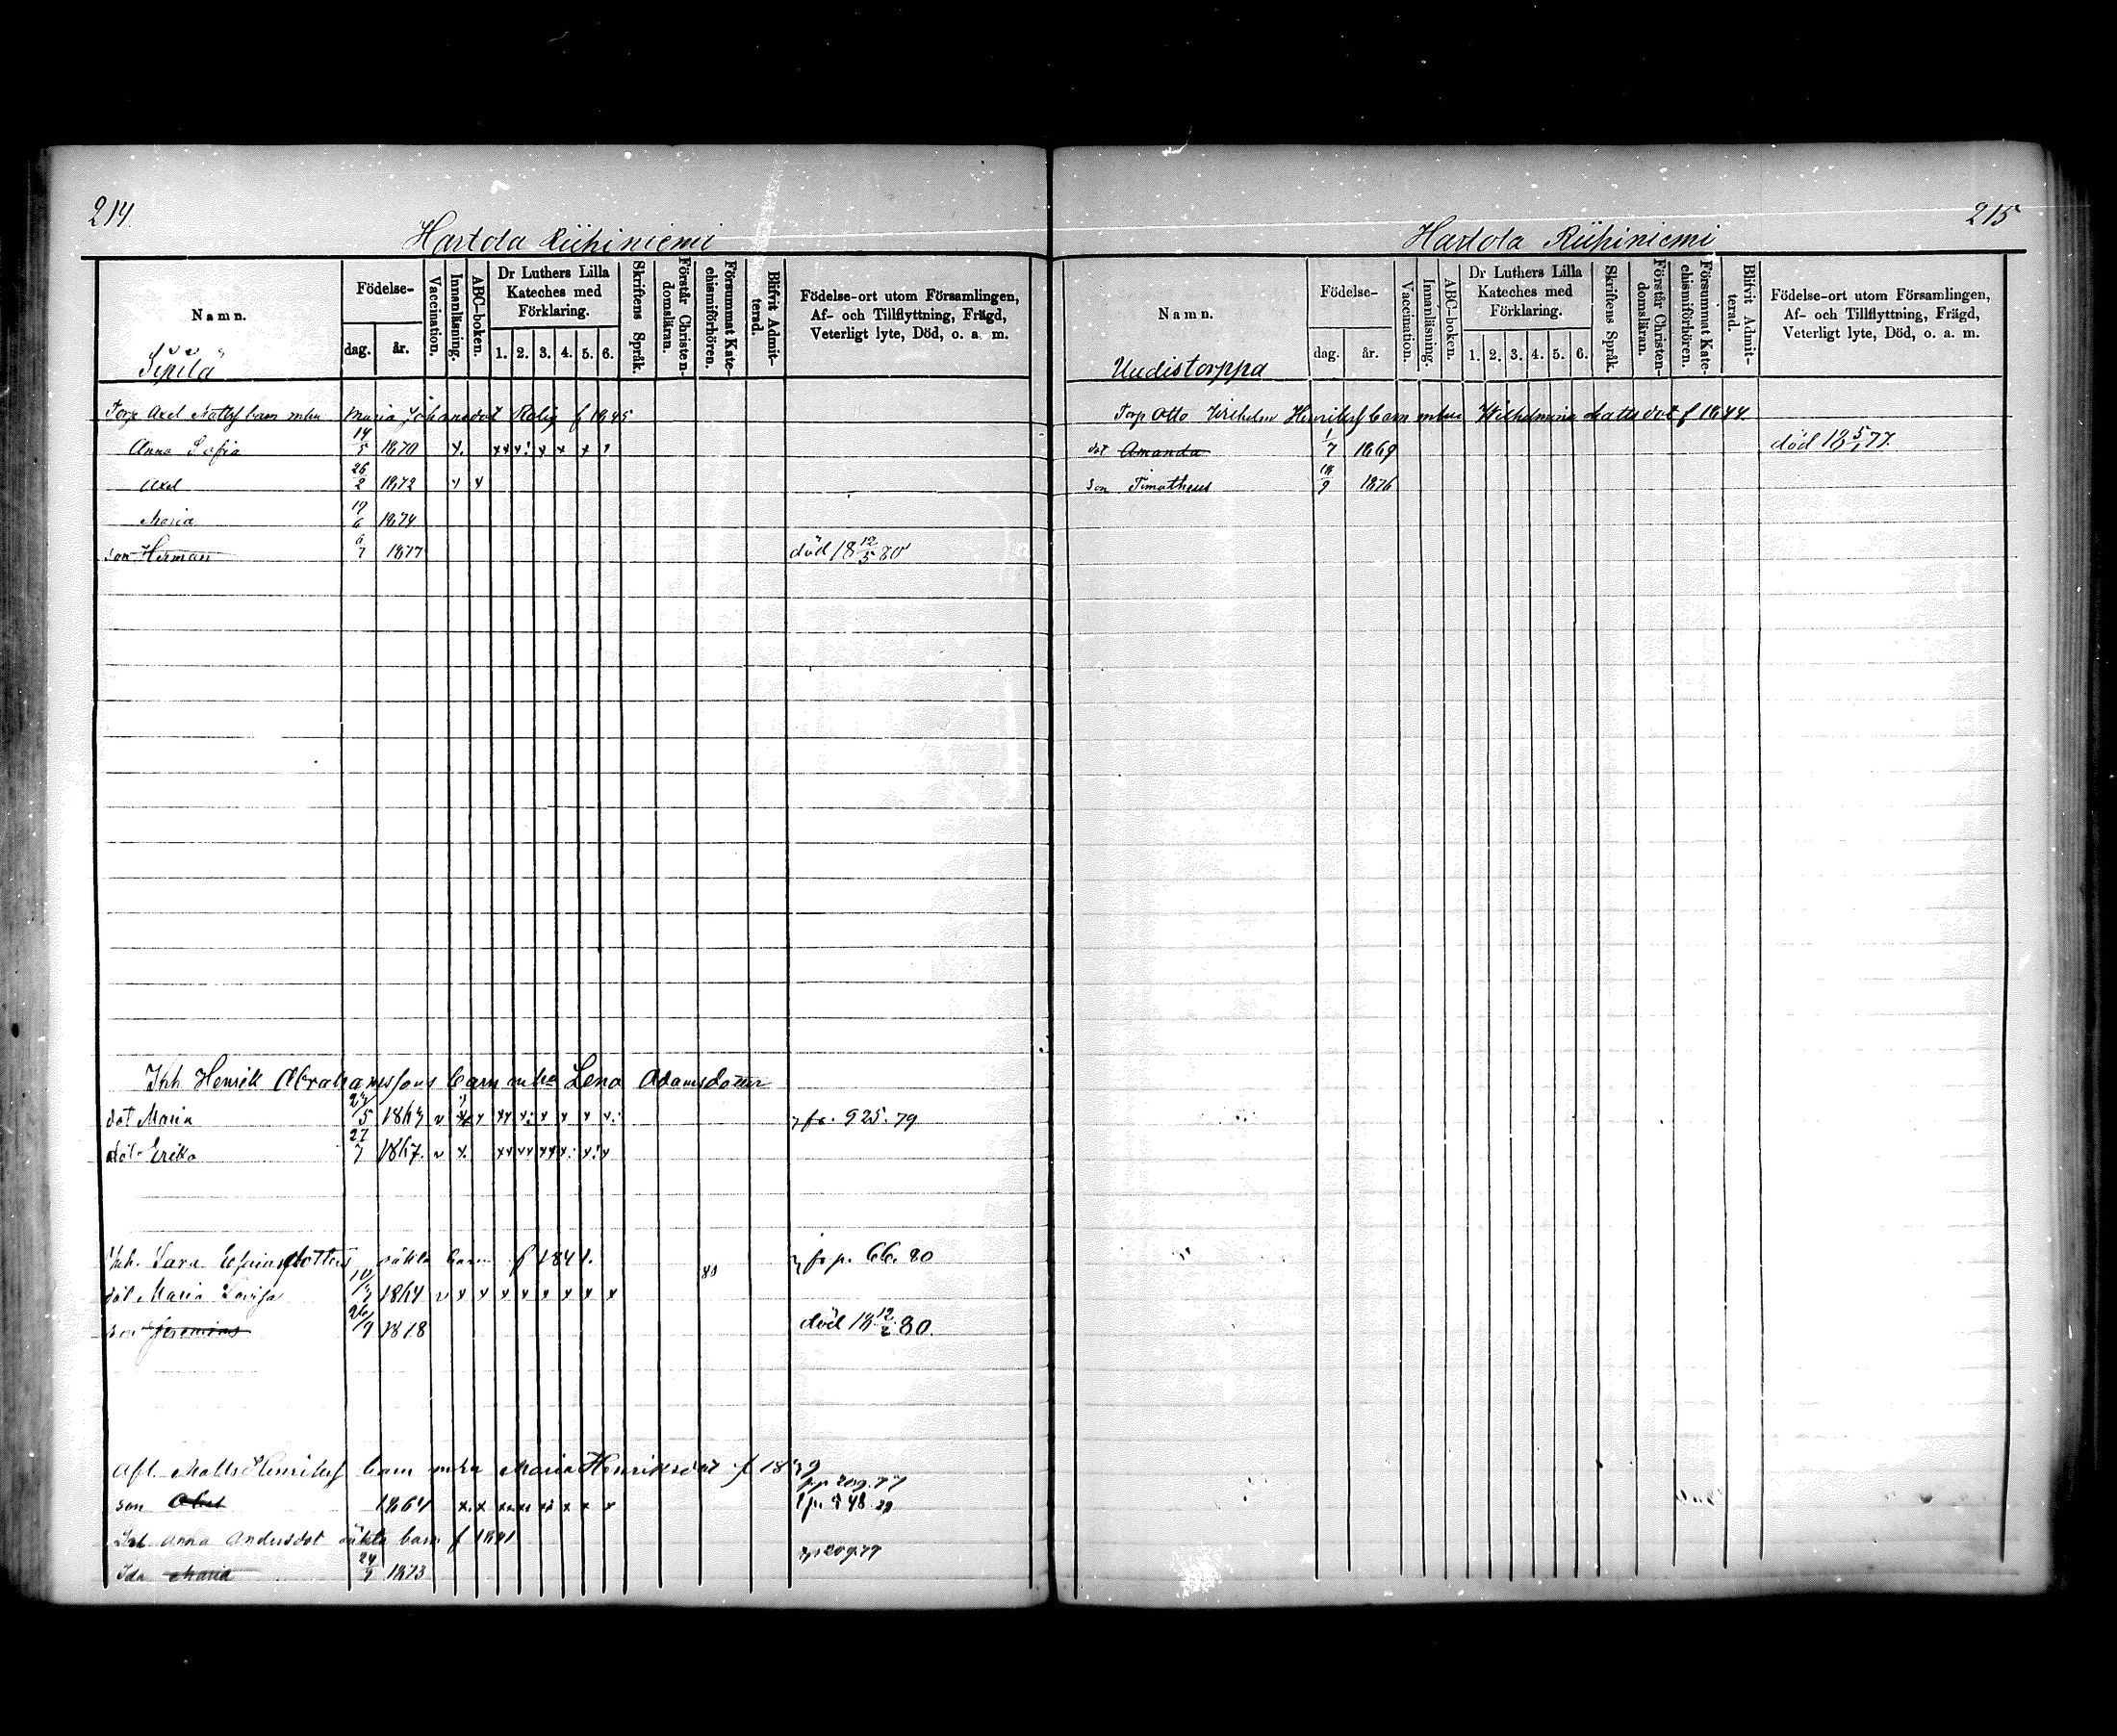 214.
Hartola Riihiniemi
Namn.
Födelse-
dag.
år.
Vaccination.
Innanläsning.
ABC-boken.
Dr Luthers Lilla Kateches med Förklaring.
1. 2. 3. 4. 5. 6.
Skriftens Språk.
Förstår Christendomsläran.
Försummat Katechismiförhören.
Blifvit Admitterad.
Födelse-ort utom Församlingen, Af- och Tillflyttning, Frägd, Veterligt lyte, Död, o. a. m.
Torp Axel Mattsf barn mhu Maria Johansdot f 1845
Anna Sofia 14/5 1870
Axel 26/2 1872
Maria 1874
son Herman 6/7 1877 död 18 12/5 80
Henrik Abrahamssons barn mhu Lena Adamsdotter
dot Maria 1863 fr. 925. 79
dot Erika 1867.
Inh. Sara dotters oäkta barn f 1841. fr p. 66. 80
80
dot Maria Lovisa 1864
son Jeremias 26/9 1878 död 18 12/2 80.
Afl. Matts Henriksf barn mhu Maria Henriksdot f
son 1864
Anna Andersdot oäkta barn f 1841
Ida Maria 1873
215
Hartola Riihiniemi
Namn.
Födelse-
dag.
år.
Vaccination.
Innanläsning.
ABC-boken.
Dr Luthers Lilla Kateches med Förklaring.
1. 2. 3. 4. 5. 6.
Skriftens Språk.
Förstår Christendomsläran.
Försummat Katechismiförhören.
Blifvit Admitterad.
Födelse-ort utom Församlingen, Af- och Tillflyttning, Frägd, Veterligt lyte, Död, o. a. m.
Uudistorppa
Torp Otto Vilhelm Henriksf barn mhu Wilhelmina Mattsdot f 1844.
dot Amanda 1/7 1869 död 18 5/1 77.
son Timotheus 18/9 1876